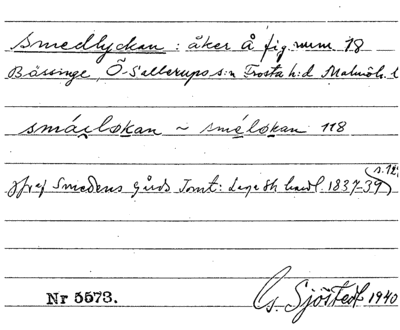 Smedlyckan : åker å fig. num. 78
Bössinge, Ö. Sallerups s:n Frosta h:d Malmöh. l
småelokan ~ smélokan 118
jfr ej Smedens Gårds Tomt: Lage sk handl. 1837-39 s. 12
Nr 5573.
G. Sjöstedt 1940